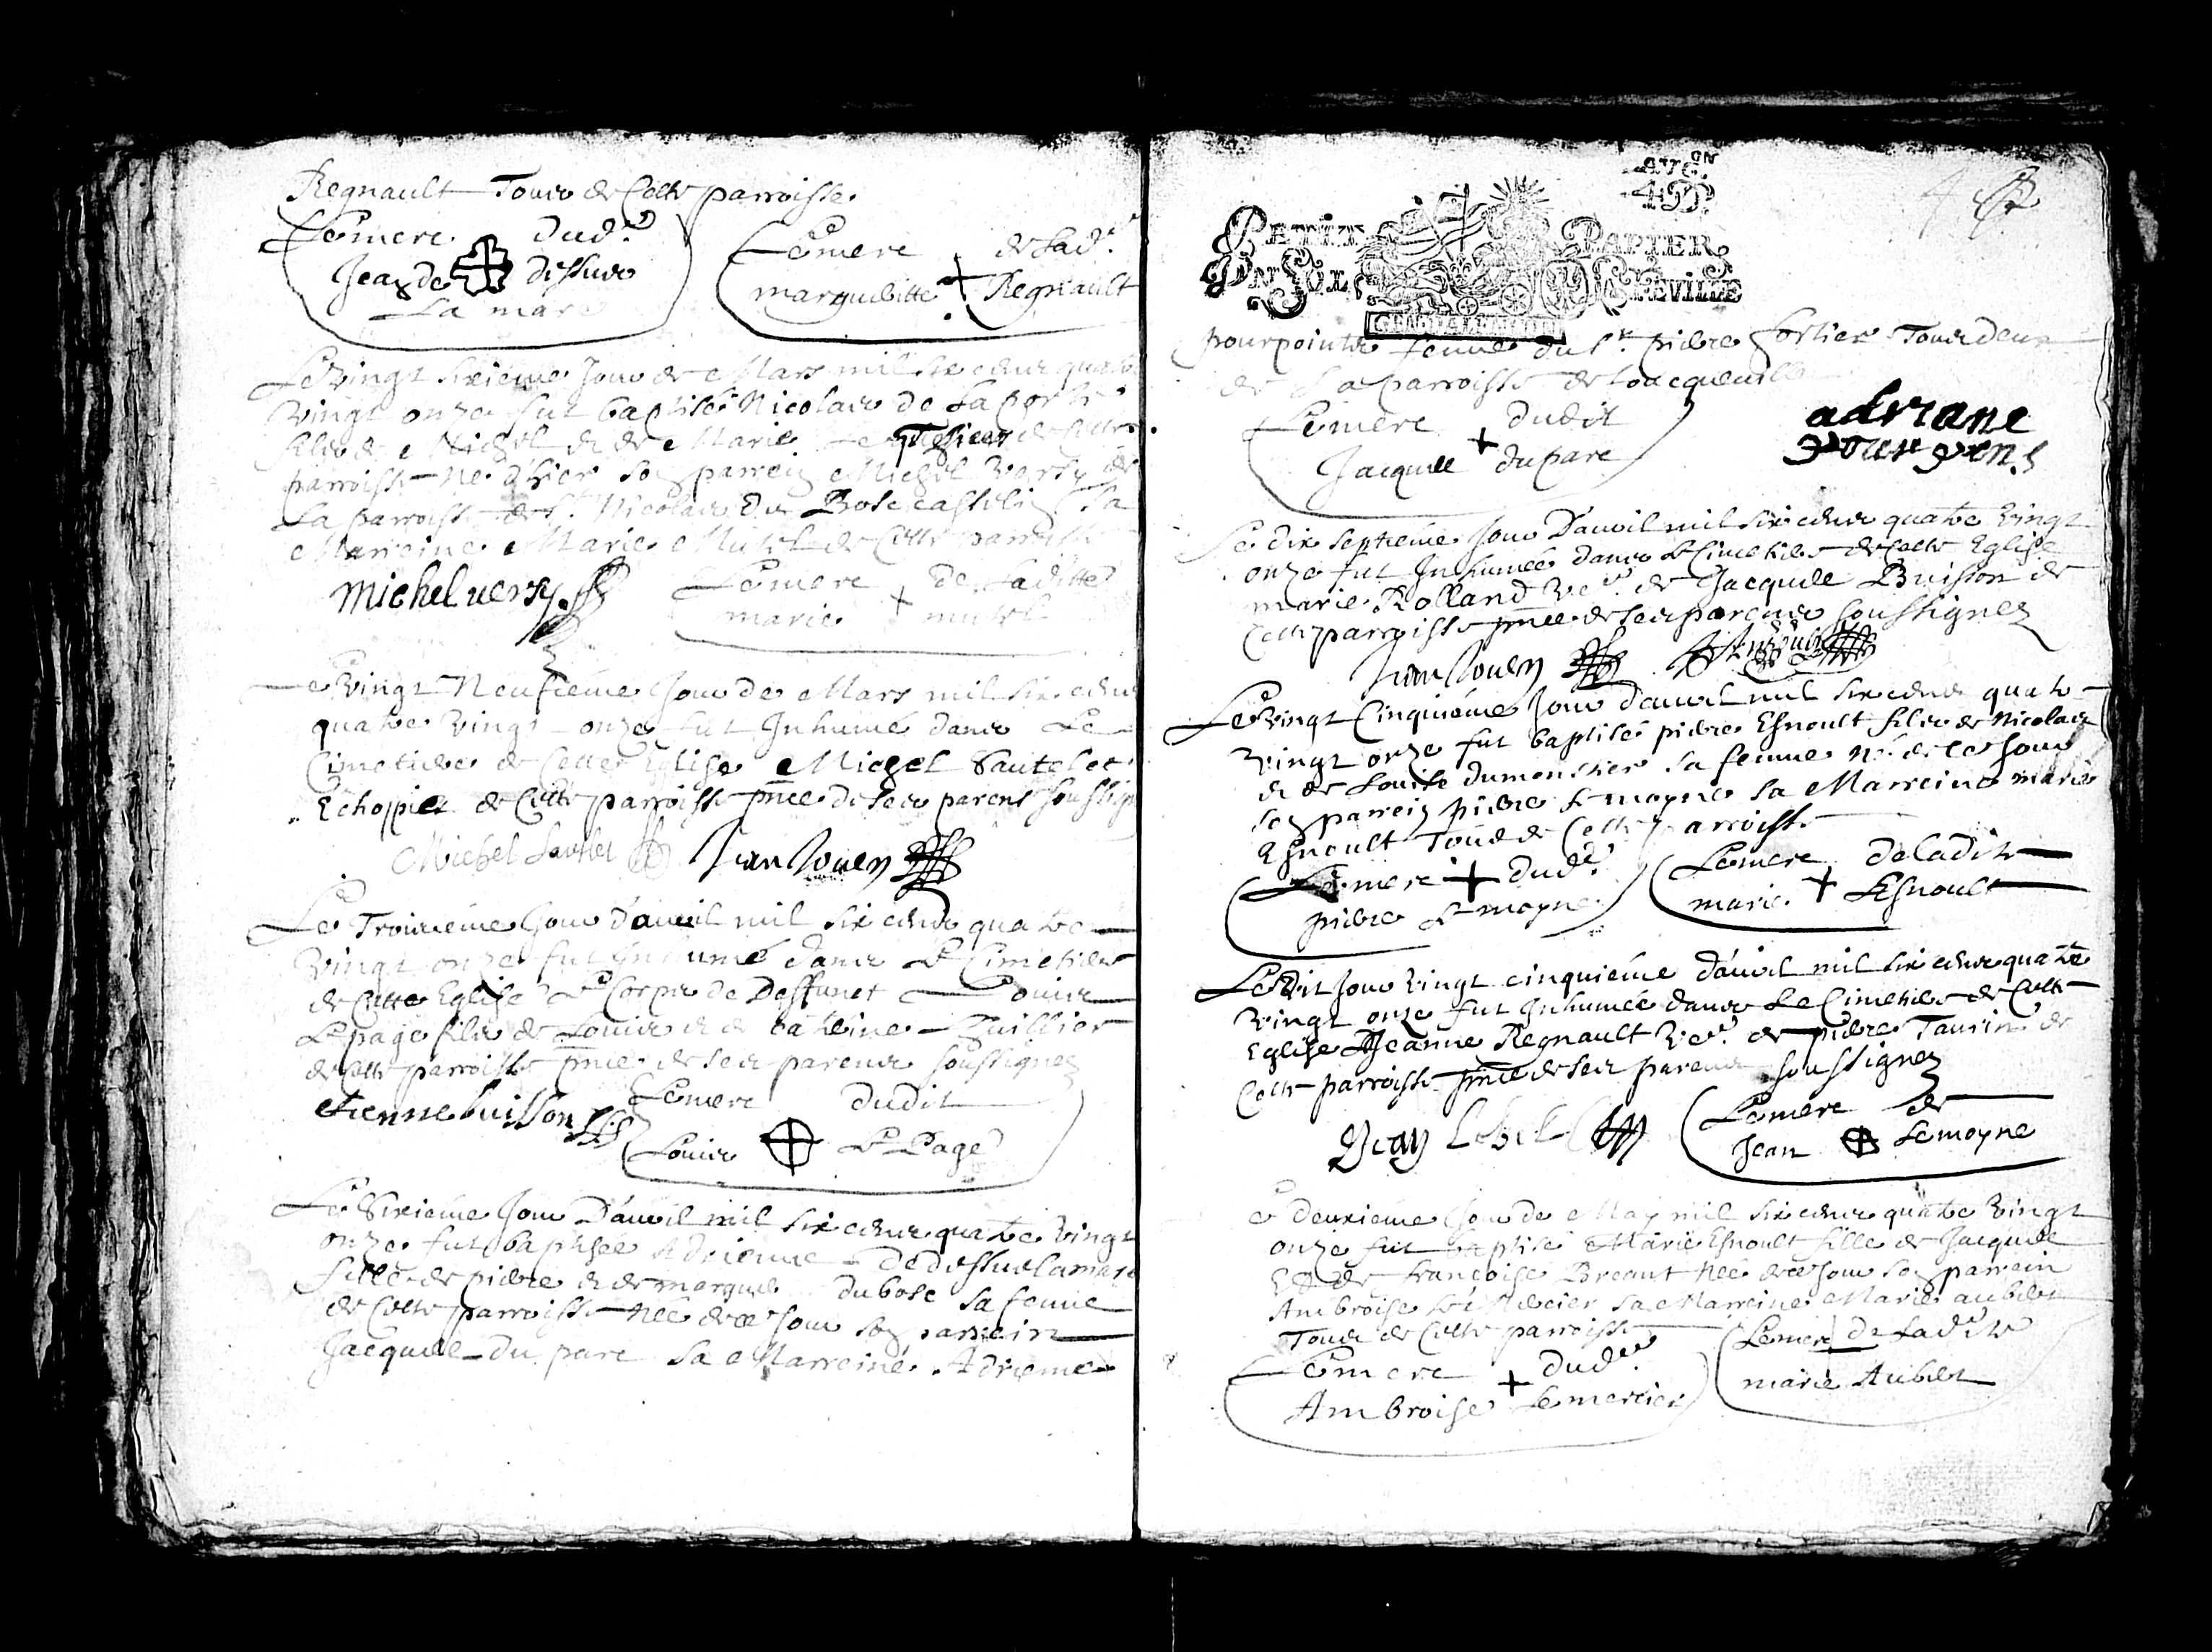 Regnault Tous de Cette parroisse
Le merc dud.t
Jean de dessus
La mare
Le merc de lad.e
marguelitte Regnault
Le Vingt sixieme Jour de Mars mil six cens quatre
Vingt onze fut baptisé Nicolas de La porte
fils de Michel et de Marie de Cette
parroisse né d'hier son parrein Michel Versy de
La parroisse de St. Nicolas du Bosc asselin Sa
Marreine Marie Mutel de Cette parroisse
Michel versy
Le merc de Laditte
marie mutel
Le Vingt Neufieme Jour de Mars mil six cens
quatre Vingt onze fut Inhumé dans Le
Cimetiere de Cette Eglise Michel Sautelet
Echoppier de Cette parroisse pnce de ses parens soussign
Michel Sautlet Jean Jouen
Le Troisieme Jour d'auvil mil six cens quatre
Vingt onze fut Inhumé dans Le Cimetiere
de Cette Eglise Le Corps de Deffunct Louis
Le page fils de Louis et de Catleine Tuillier
de Cette parroisse pnce de ses parens soussignez
etienne buisson
Le merc dudit
Louis Le Page
Le Sixieme Jour D'auvil mil six cens quatre Vingt
onze fut baptisée Adrienne De dessus la mare
fille de pierre et de Margueritte dubosc sa femme
de Cette parroisse Née de ce Jour son parrein
Jacques du parc Sa Marreine Adrienne
PETIT PAPIER
GEN
pourpointe femme du Sr. pierre fortier Tous deux
de La parroisse de tocqueville
Le merc dudit
Jacques du parc
adriane
Le dix septieme Jour D'auvil mil six cens quatre Vingt
onze fut Inhumée dans Le Cimetiere de Cette Eglise
marie Rolland Ve. de Jacques Buisson de
Cette parroisse pnce de ses parens soussignez
Jean Jouen
Le Vingt Cinquieme Jour d'auvil mil six cens quatre
Vingt onze fut baptisé pierre Esnoult fils de Nicolas
et de Louise dumonstier sa femme né de ce Jour
son parrein pierre Le moyne sa Marreine marie
Esnoult Tous de Cette parroisse
Le merc dud.t
pierre Le moyne
Le merc de Laditte
marie Esnoult
Ledit Jour Vingt cinquieme d'auvil mil six cens quatre
Vingt onze fut Inhumée dans Le Cimetiere de Cette
Eglise Jeanne Regnault Ve. de pierre Taurin de
Cette parroisse pnce de ses parens soussignez
Jean Lebel
Le merc de
Jean Lemoyne
Le deuxieme Jour de May mil six cens quatre Vingt
onze fut baptisé Marie Esnoult fille de Jacques
Et de françoise Breant Née de ce Jour son parrein
Ambroise Le Mercier sa Marreine Marie aubert
Tous de Cette parroisse
Le merc dud.t
Ambroise Le mercier
Le merc de Laditte
marie Aubert